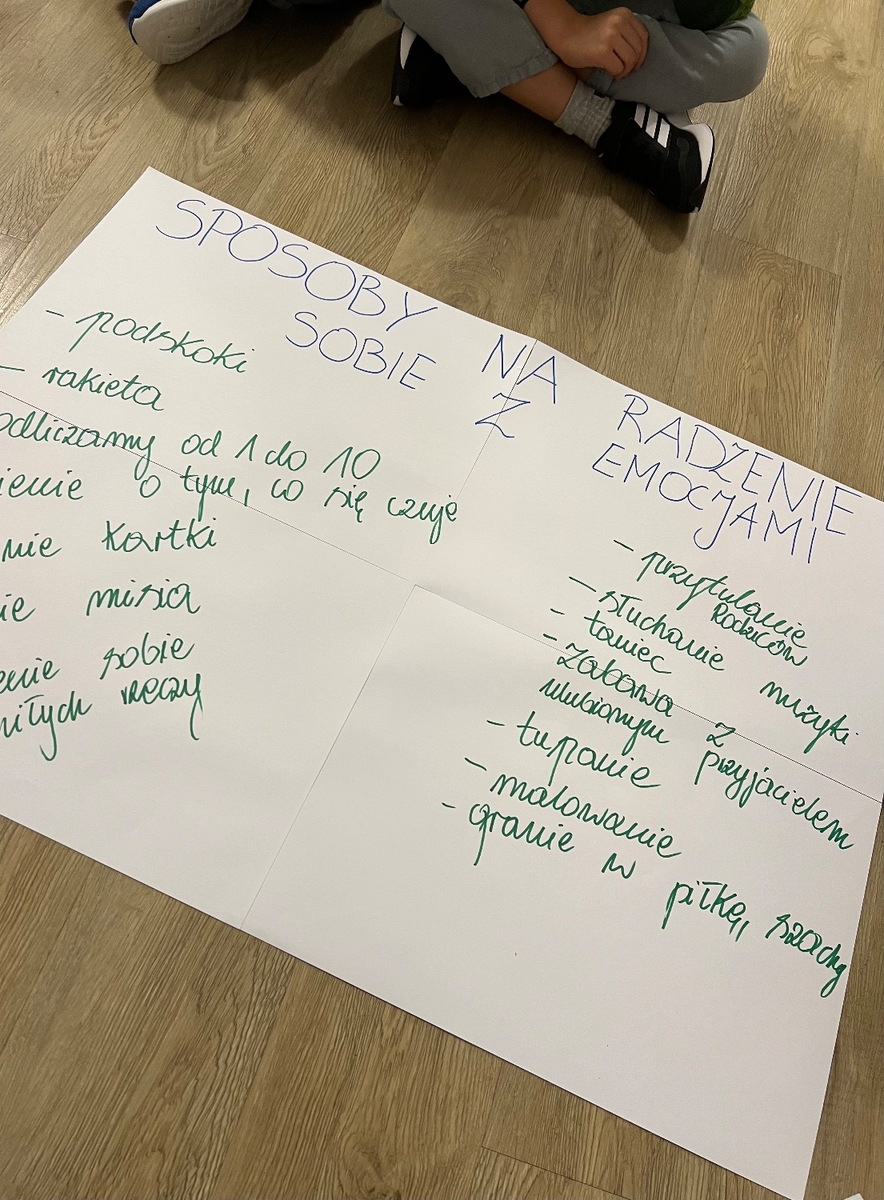 SPOSOBY NA RADZENIE
SOBIE Z EMOCJAMI
- podskoki
- rakieta
odliczamy od 1 do 10
ienie o tym, co się czuje
nie kartki
ie misia
enie sobie
miłych rzeczy
- przytulanie
Rodziców
- słuchanie muzyki
- taniec
- zabawa z
ulubionym przyjacielem
- tupanie
- malowanie
- granie w piłkę, szachy